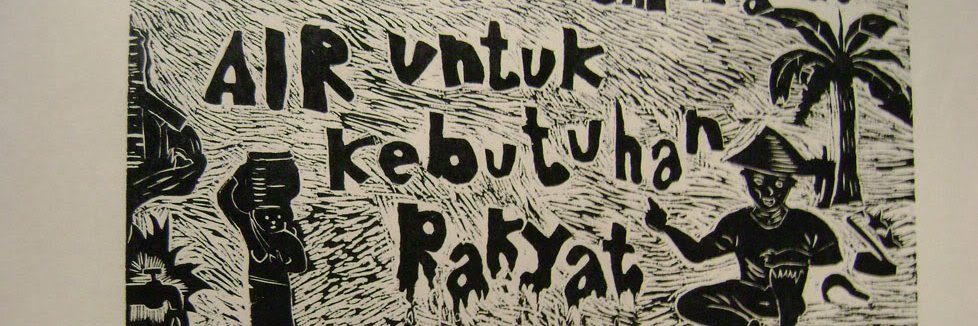 AIR untuk
kebutuhan
Rakyat